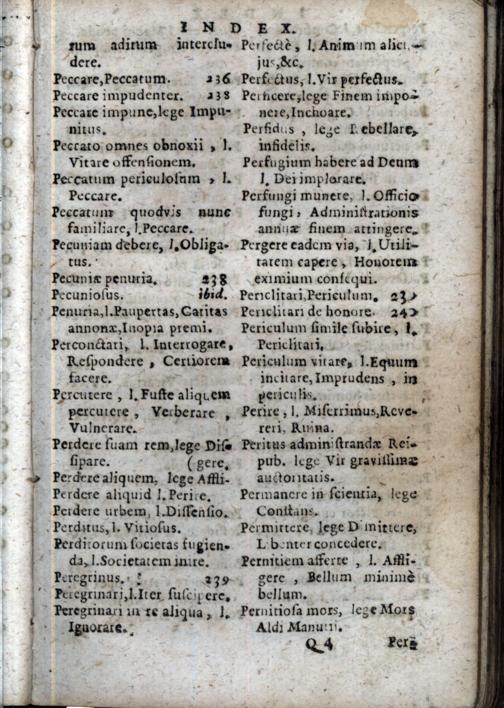 INDEX.
rum aditum interclu-
dere.
Peccare, Peccatum. 236
Peccare impudenter. 238
Peccare impune, lege Impu-
nitus.
Peccato omnes obnoxii, l.
Vitare offensionem.
Peccatum periculosum, l.
Peccare.
Peccatum quodvis nunc
familiare, l. Peccare.
Pecuniam debere, l. Obliga-
tus.
Pecuniæ penuria. 238
Pecuniosus. ibid.
Penuria, l. Paupertas, Caritas
annonæ, Inopia premi.
Perconctari, l. Interrogare,
Respondere, Certiorem
facere.
Percutere, l. Fuste aliquem
percutere, Verberare,
Vulnerare.
Perdere suam rem, lege Dis-
sipare. (gere.
Perdere aliquem, lege Affli-
Perdere aliquid l. Perire.
Perdere urbem, l. Dissensio.
Perditus, l. Vitiosus.
Perditorum societas fugien-
da, l. Societatem inire.
Peregrinus. 239
Peregrinari, l. Iter suscipere.
Peregrinari in re aliqua, l.
Ignorare.
Perfectè, l. Animum alicu-
jus, &c.
Perfectus, l. Vir perfectus.
Perficere, lege Finem impo-
nere, Inchoare.
Perfidus, lege Rebellare,
infidelis.
Perfugium habere ad Deum
l. Dei implorare.
Perfungi munere, l. Officio
fungi, Administrationis
annuæ finem attingere.
Pergere eadem via, l. Utili-
tatem capere, Honorem
eximium consequi.
Periclitari, Periculum.
Periclitari de honore. 240
Periculum simile subire, l.
Periclitari.
Periculum vitare, l. Equum
incitare, Imprudens, in
periculis.
Perire, l. Miserrimus, Reve-
reri, Ruina.
Peritus administrandæ Rei-
pub. lege Vir gravissimæ
auctoritatis.
Permanere in scientia, lege
Constans.
Permittere, lege Dimittere,
Libenter concedere.
Pernitiem afferre, l. Affli-
gere, Bellum minimè
bellum.
Pernitiosa mors, lege Mors
Aldi Manutii.
Q 4 Per-